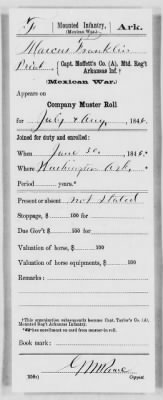 F | Mounted Infantry, | Ark.
(Mexican War.)
Marcus Franklin
Privt., { Capt. Moffett's Co. (A), Mtd. Reg't Arkansas Inf.*
(Mexican War.)
Appears on
Company Muster Roll
for July & Aug, 1846.
Joined for duty and enrolled:
When June 30, 1846.
Where Washington Ark,
Period years.*
Present or absent not stated
Stoppage, $ 100 for
Due Gov't $ 100 for
Valuation of horse, $ 100
Valuation of horse equipments, $ 100
Remarks:
*This organization subsequently became Capt. Taylor's Co. (A), Mounted Reg't Arkansas Infantry.
*See enrollment on card from muster-in roll.
Book mark:
(358c)
Copyist.